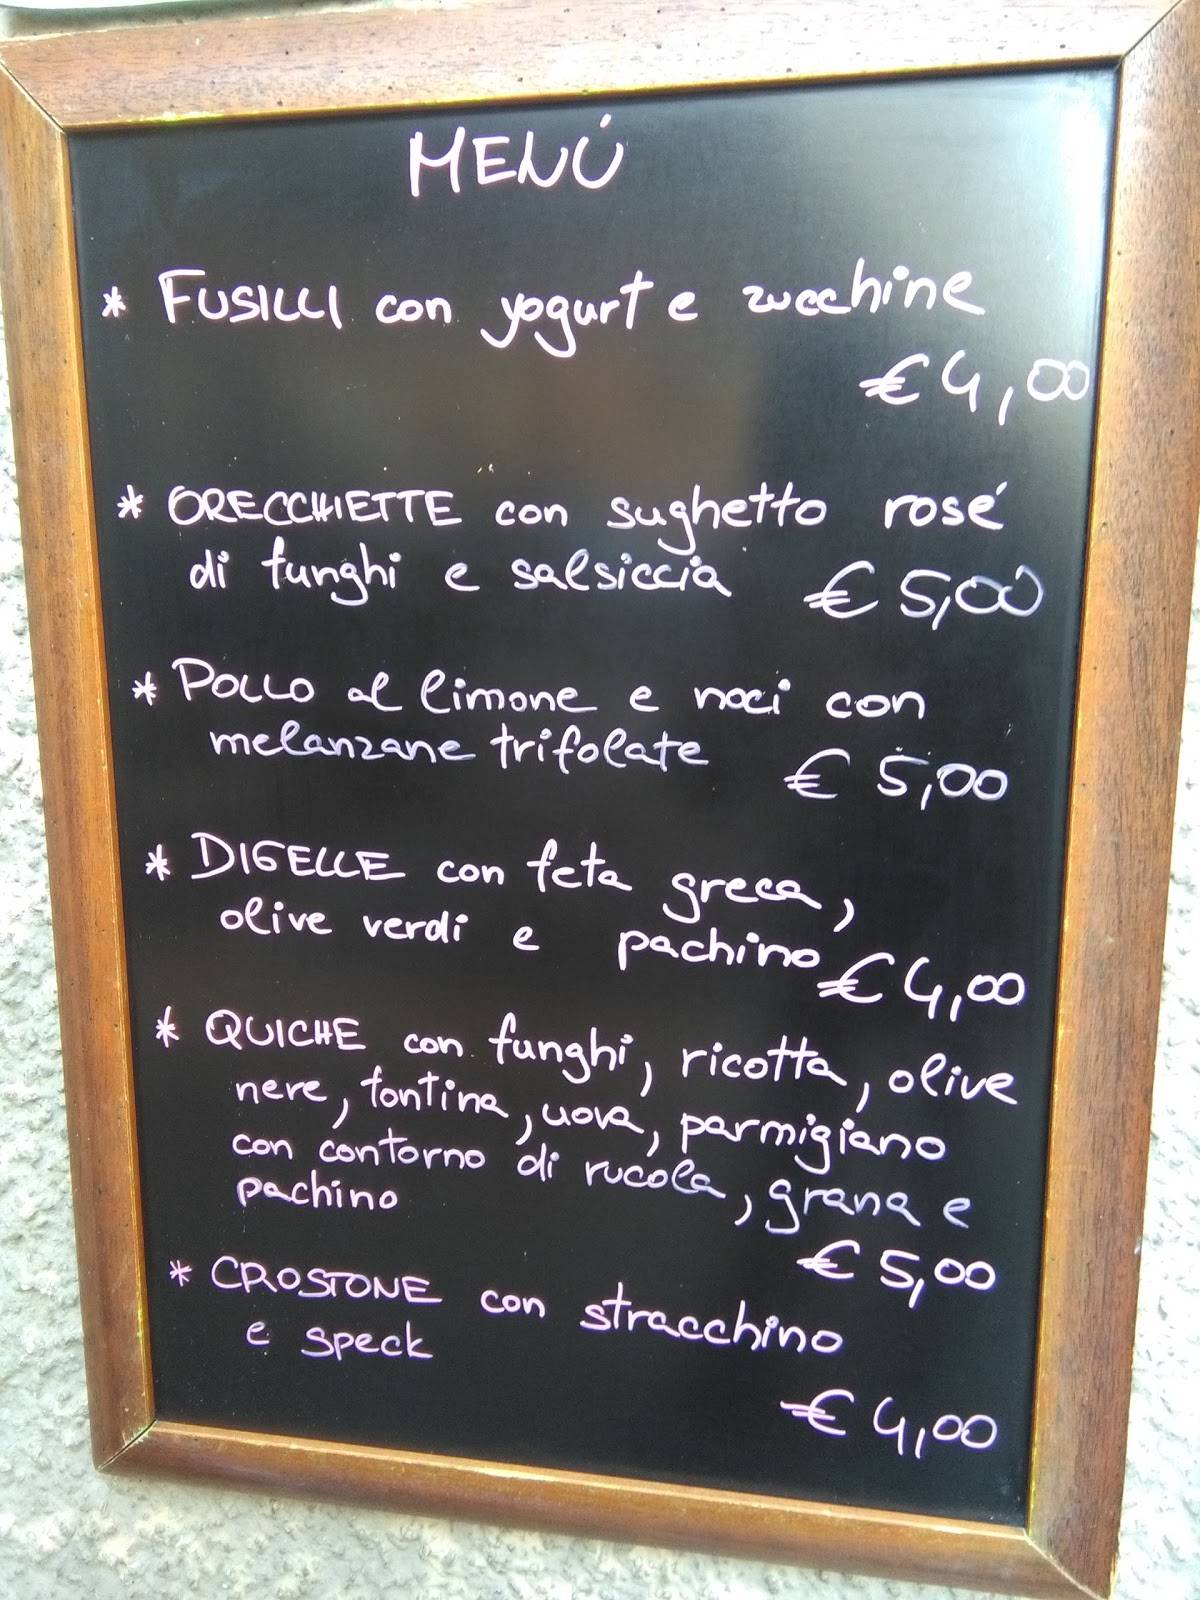 MENÚ
* FUSILLI con yogurt e zucchine
€ 4,00
* ORECCHIETTE con sughetto rosé
di funghi e salsiccia € 5,00
* POLLO al limone e noci con
melanzane trifolate € 5,00
* DIGELLE con feta greca,
olive verdi e pachino € 4,00
* QUICHE con funghi, ricotta, olive
nere, fontina, uova, parmigiano
con contorno di rucola, grana e
pachino
€ 5,00
* CROSTONE con stracchino
e speck
€ 4,00